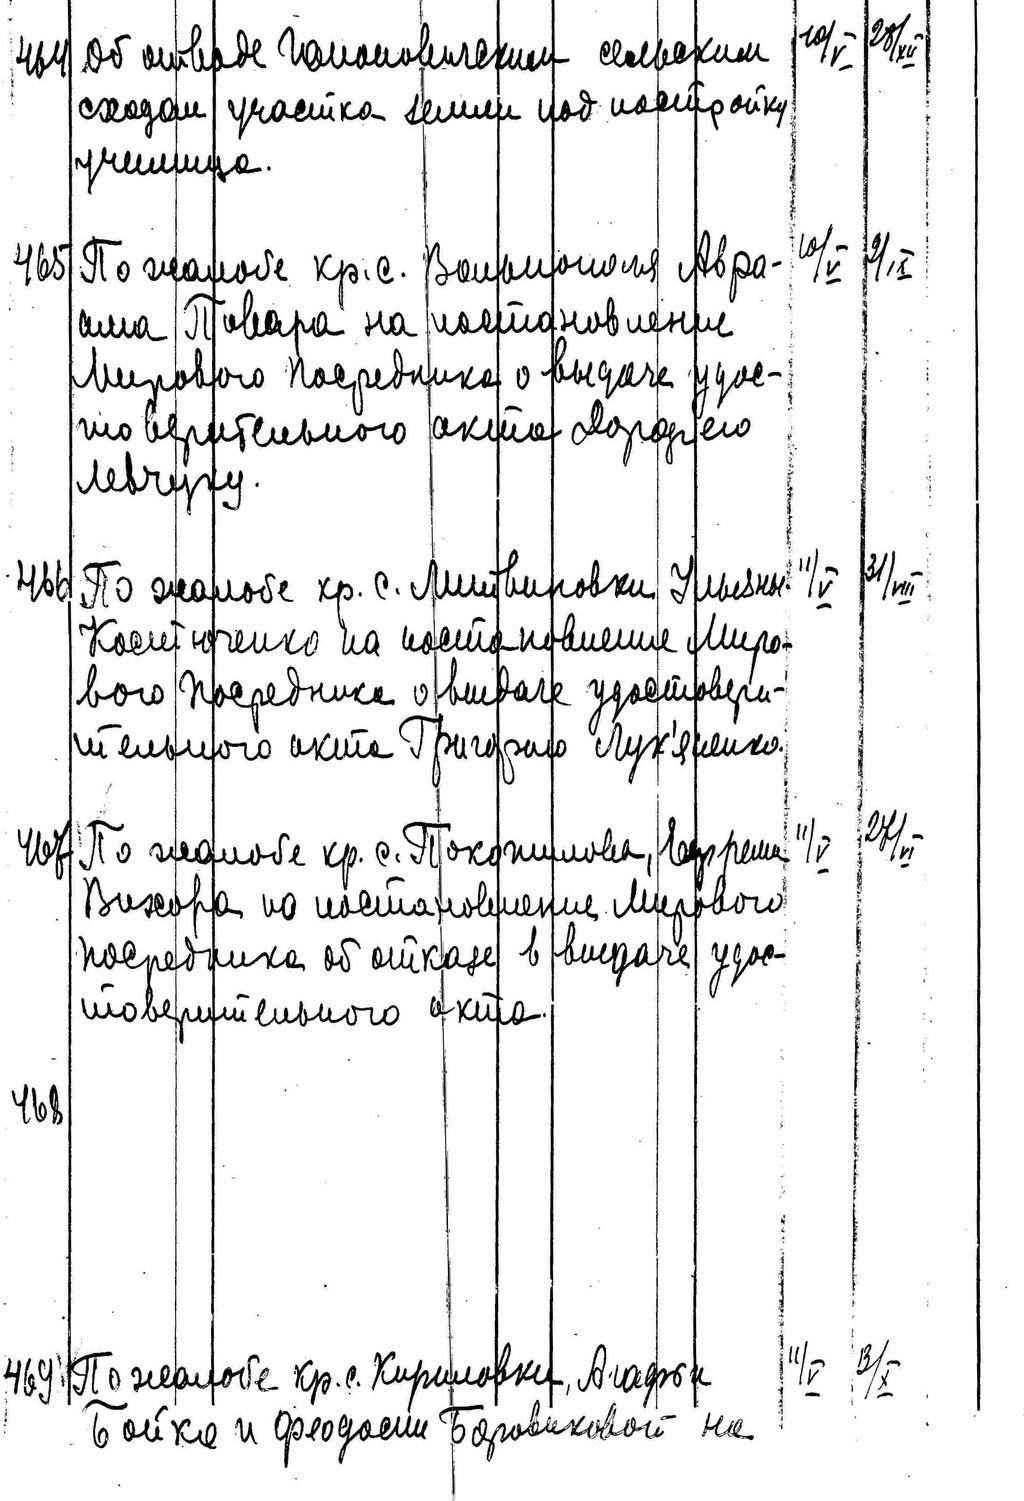 464 Об отводе сельским 10/V 28/XII
сходом участка земли под постройку
училища.
465 По жалобе кр. с. Вольнополя Авра- 10/V 9/IX
ама Повара на постановление
Мирового Посредника о выдаче удос-
товерительного акта Дорофею
Левчуку.
466 По жалобе кр. с. Литвиновки Ульяны 11/V 31/VIII
Костюченко на постановление Миро-
вого Посредника о выдаче удостовери-
тельного акта Григорию Лук'яненко.
467 По жалобе кр. с. Покотилова, 11/V 27/VI
Вихора на постановление Мирового
Посредника об отказе в выдаче удос-
товерительного акта.
468
469 По жалобе кр. с. Кириловки, Агафьи 11/V 13/X
Бойко и Феодосии Боровиковой на